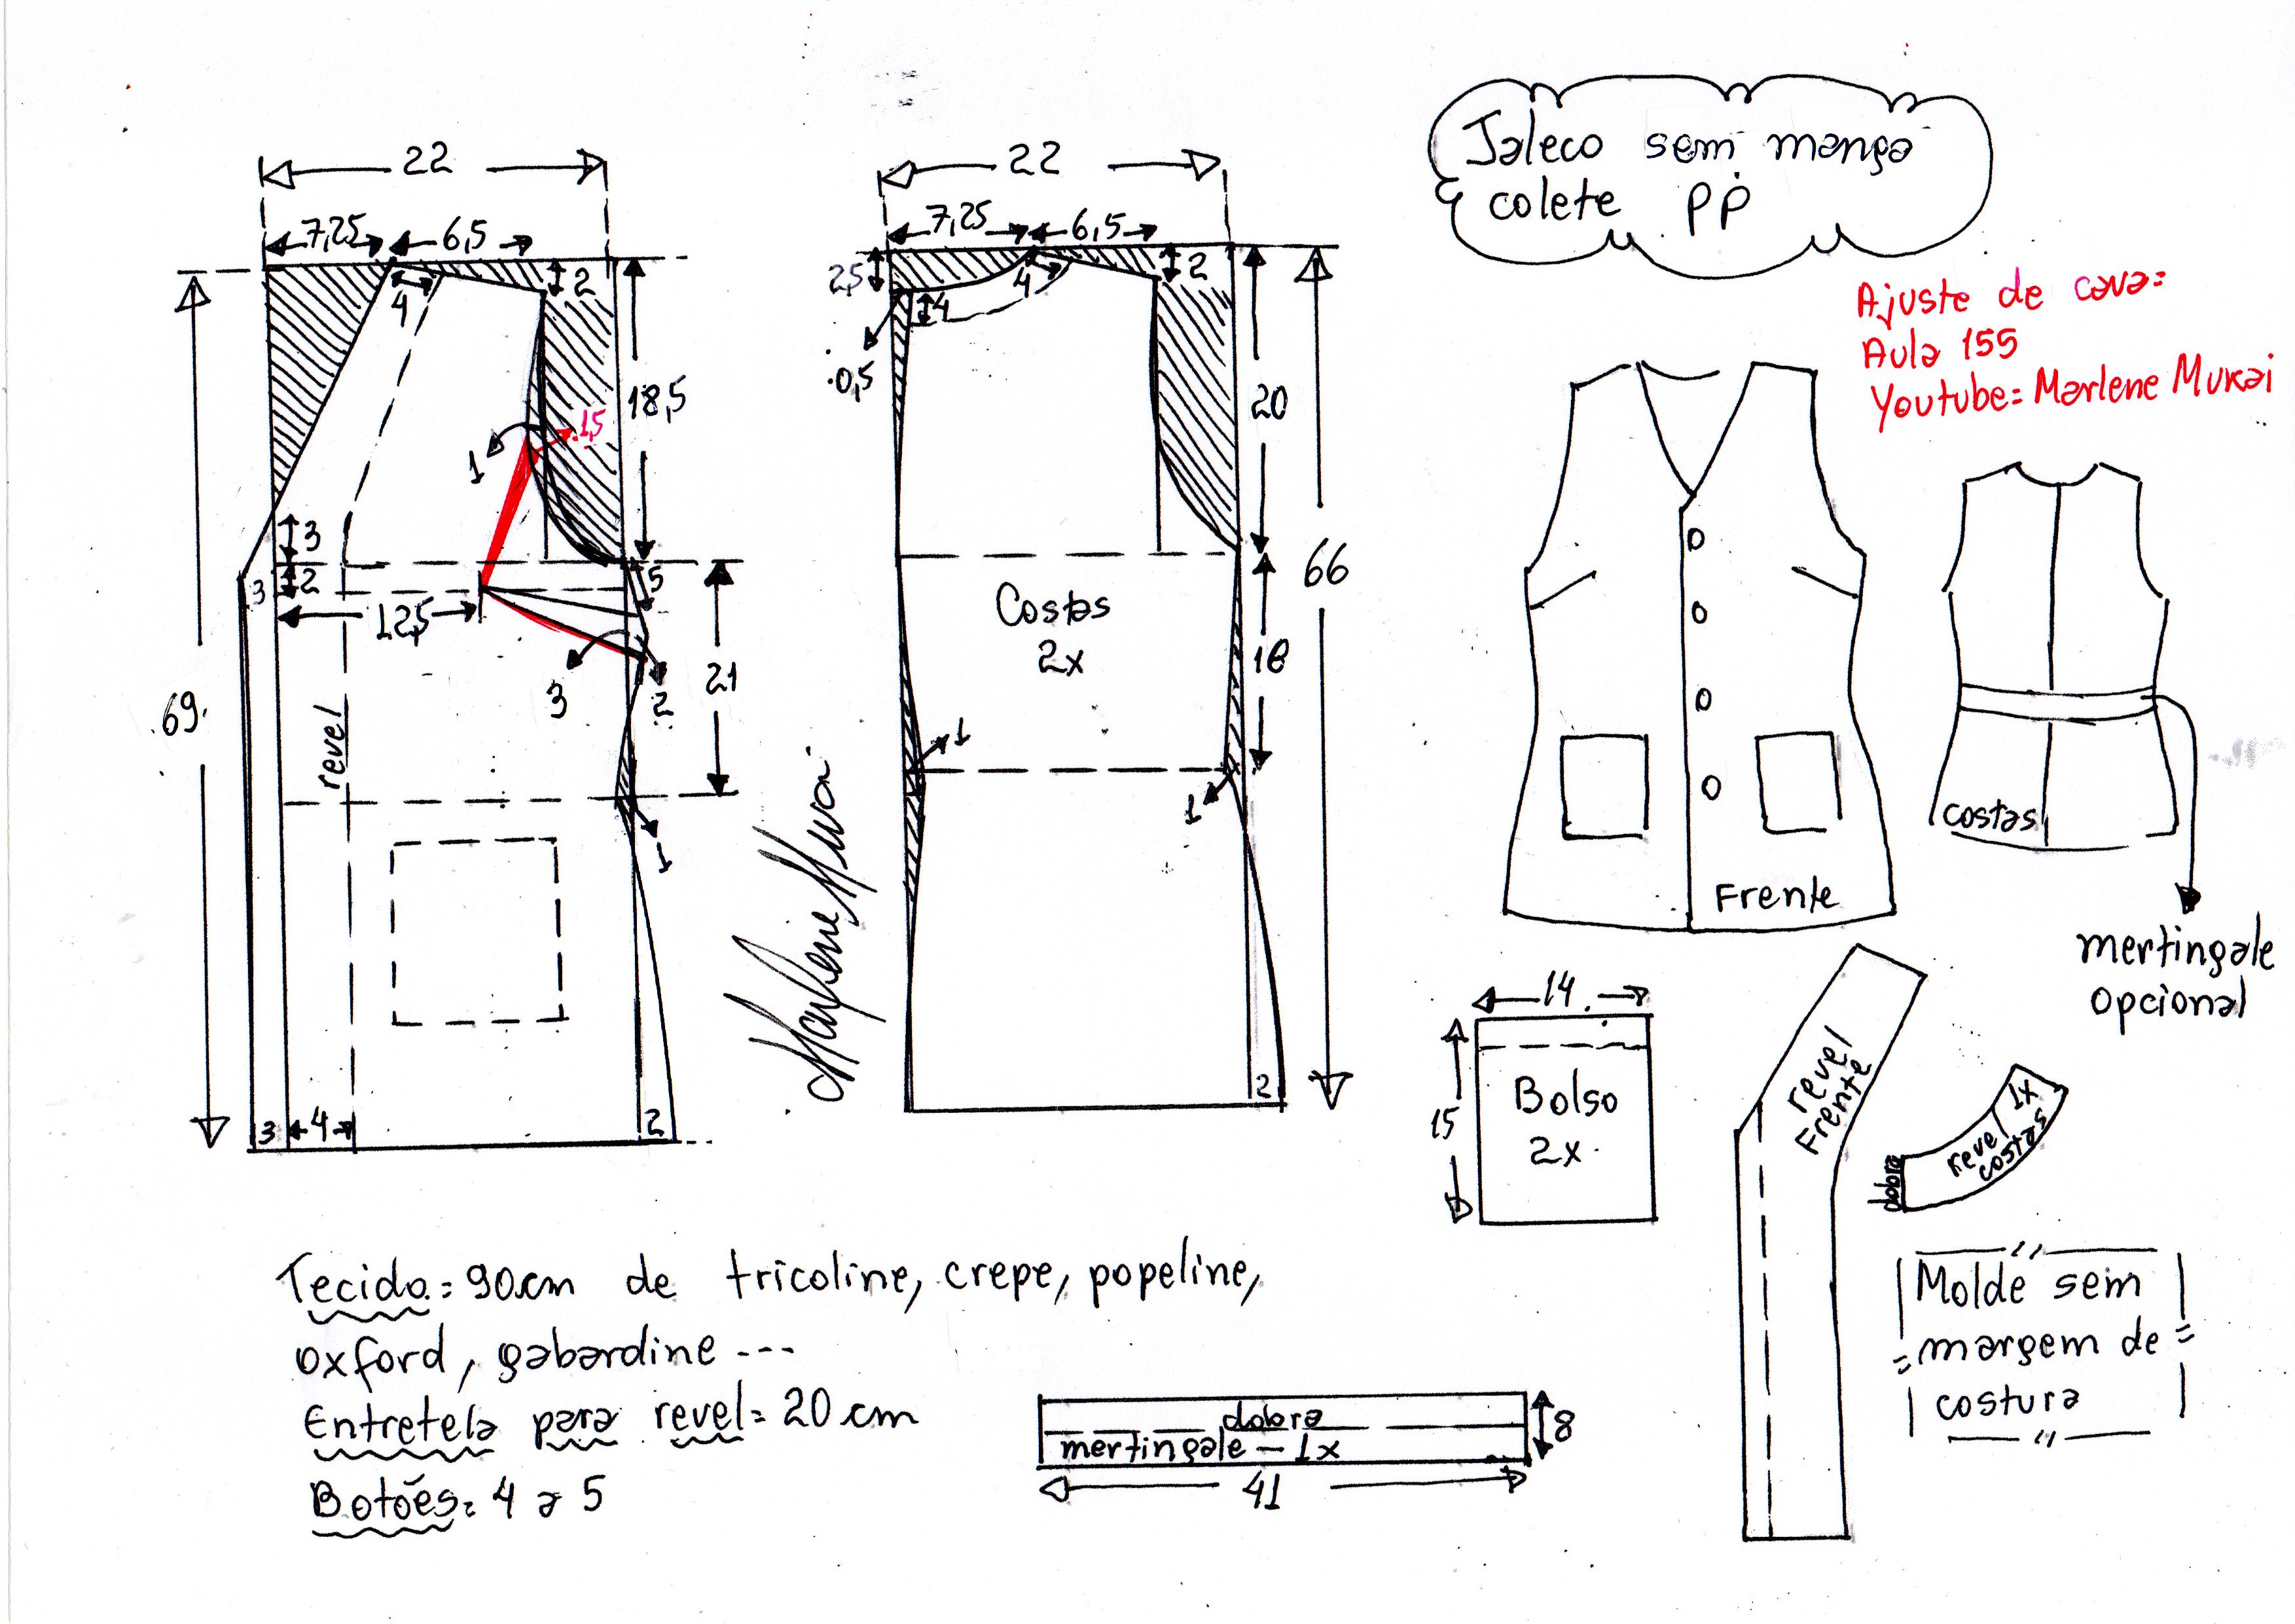 Jaleco sem manga
colete PP
Ajuste de cava:
Aula 155
Youtube= Marlene Mukai
22
7,25
6,5
4
2
18,5
1,5
1
3
2
3
12,5
5
3
2
21
69
revel
1
3
4
2
22
7,25
6,5
2,5
4
4
2
0,5
20
66
Costas
2x
18
1
1
2
Marlene Mukai
Frente
costas
mertingale
opcional
14
15
Bolso
2x
revel
Frente
1x
revel
costas
dobra
Molde sem
margem de
costura
Tecido= 90cm de tricoline, crepe, popeline,
oxford, gabardine ---
Entretela para revel= 20 cm
Botões= 4 a 5
dobra
mertingale - 1x
8
41